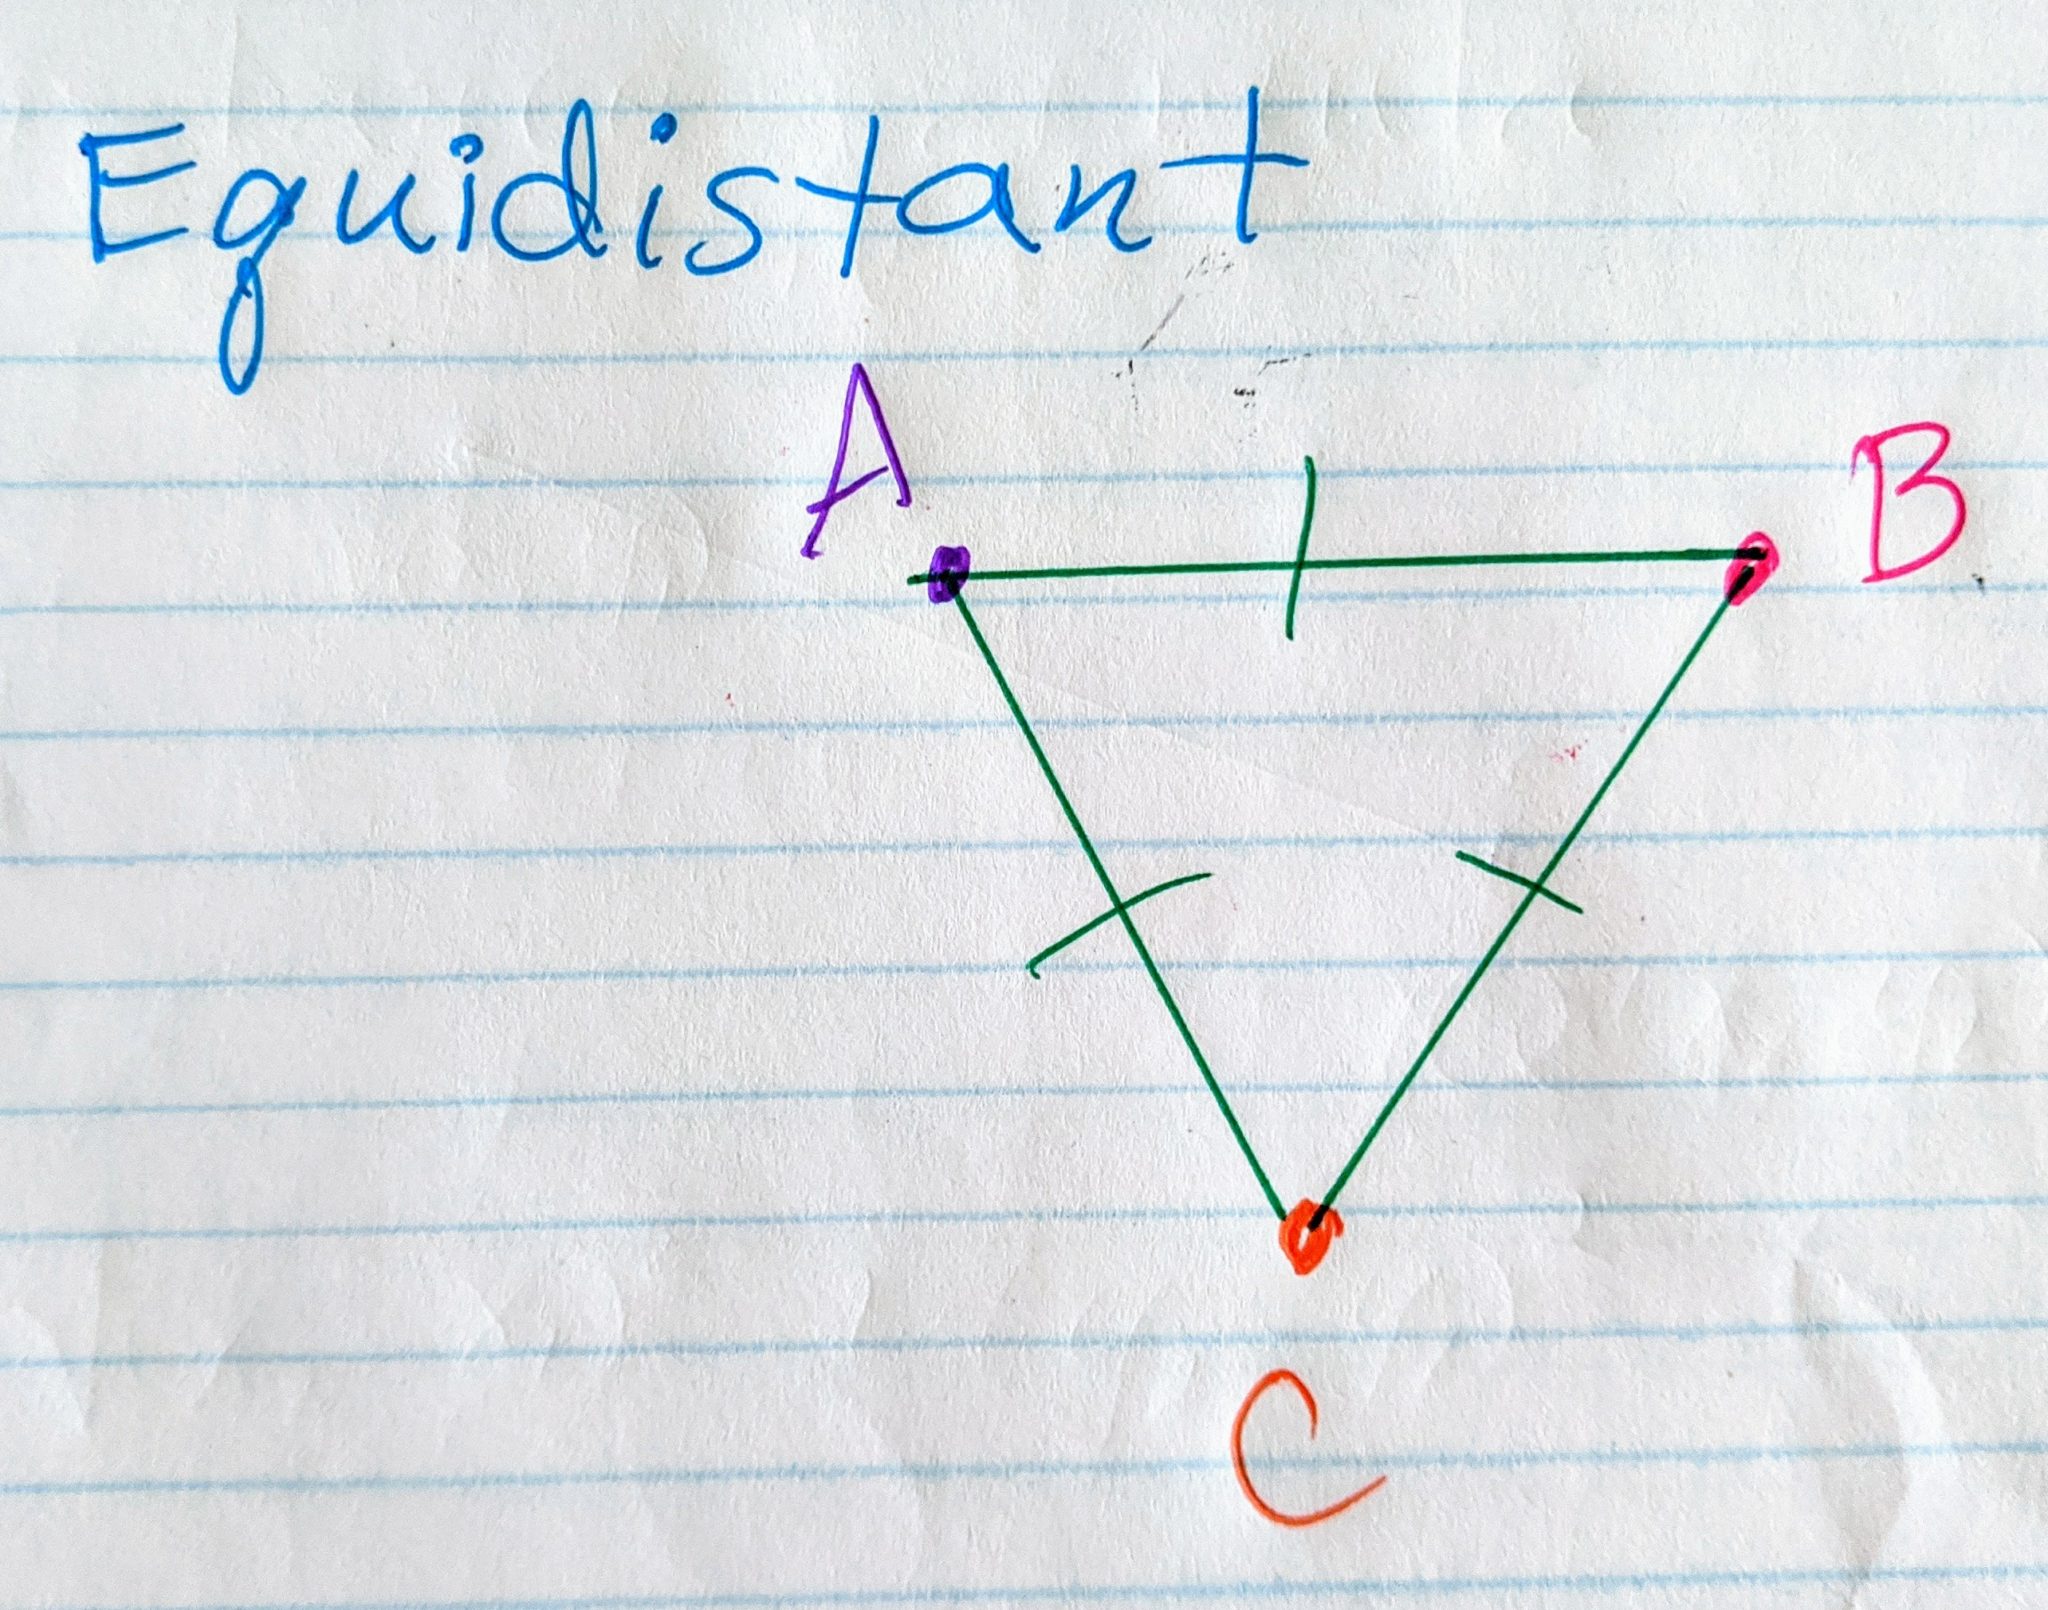 Equidistant
A
B
C